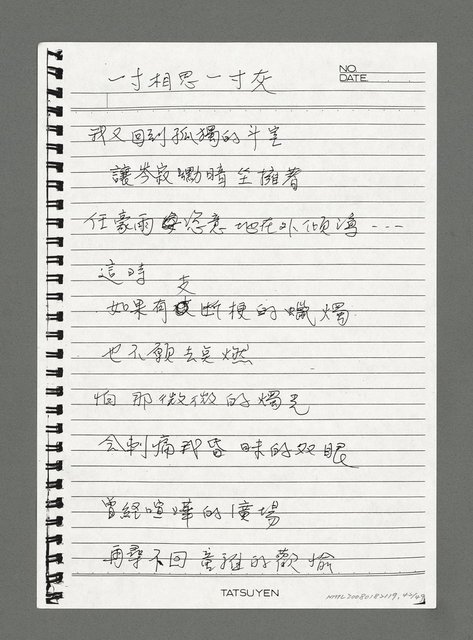 一寸相思一寸灰
NO.
DATE
我又回到孤獨的斗室
讓岑寂
擁著
任豪雨恣意地在外傾瀉---
這時
支
如果有斷梗的蠟燭
也不願去點燃
怕那微微的燭光
會刺痛我昏昧的双眼
曾經喧嘩的廣場
再尋不回童稚的歡愉
TATSUYEN
NMTL20080182119, 42/49